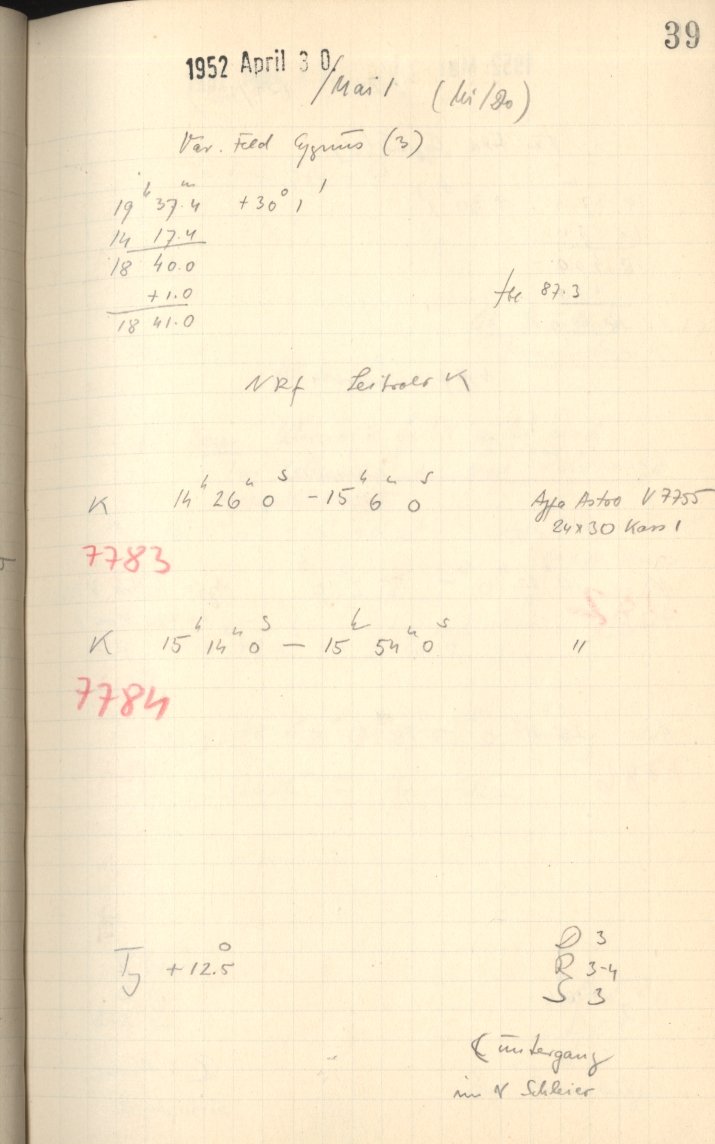 39
1952 April 30.
/Mai 1 (Mi/Do)
Var. Feld Cygnus (3)
19h 37.4m +30° 1'
14 17.4
18 40.0
+1.0
18 41.0
87.3
NRf K
K 14h 26m 0s - 15h 6m 0s Agfa Astro V7755
24x30 Kass 1
7783
K 15h 14m 0s - 15h 54m 0s "
7784
+12.5°
D 3
R 3-4
S 3
☾ untergang
im N Schleier